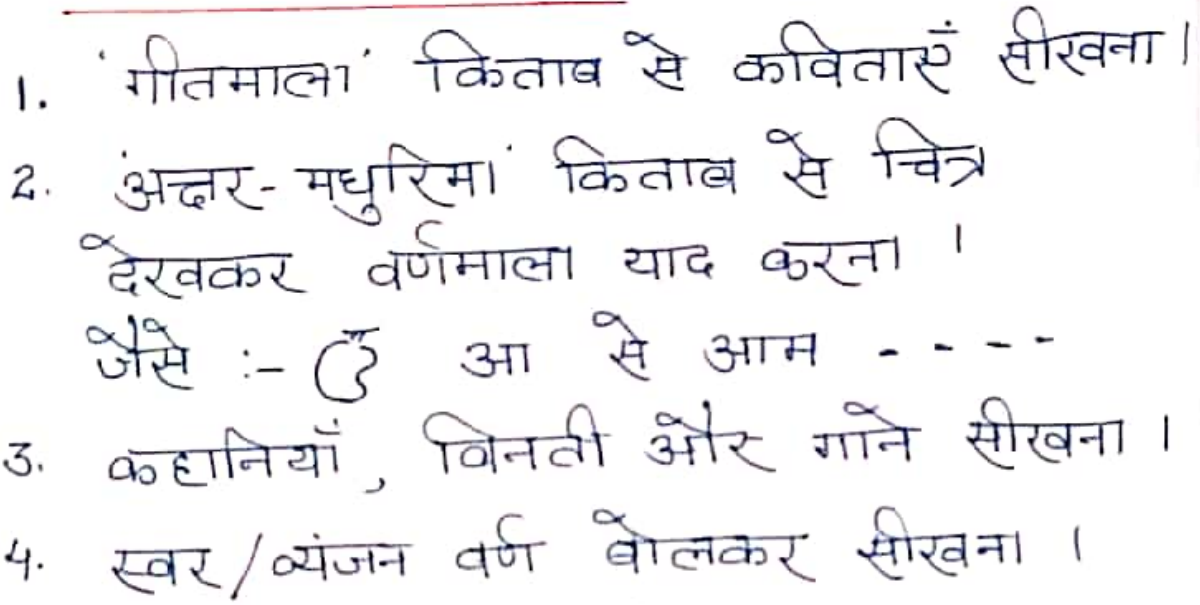 1. 'गीतमाला' किताब से कविताएँ सीखना।
2. 'अक्षर-मधुरिमा' किताब से चित्र
देखकर वर्णमाला याद करना ।
जैसे :- आ से आम - - - -
3. कहानियाँ, विनती और गाने सीखना ।
4. स्वर/व्यंजन वर्ण बोलकर सीखना ।